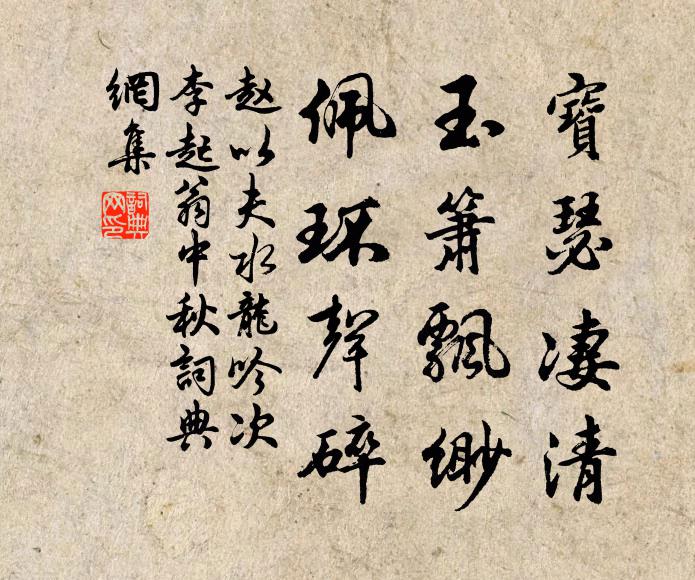 寶瑟凄清
玉簫飄緲
佩環聲碎
赵以夫水龍吟次
李起翁中秋詞典
網集
詞典
网印